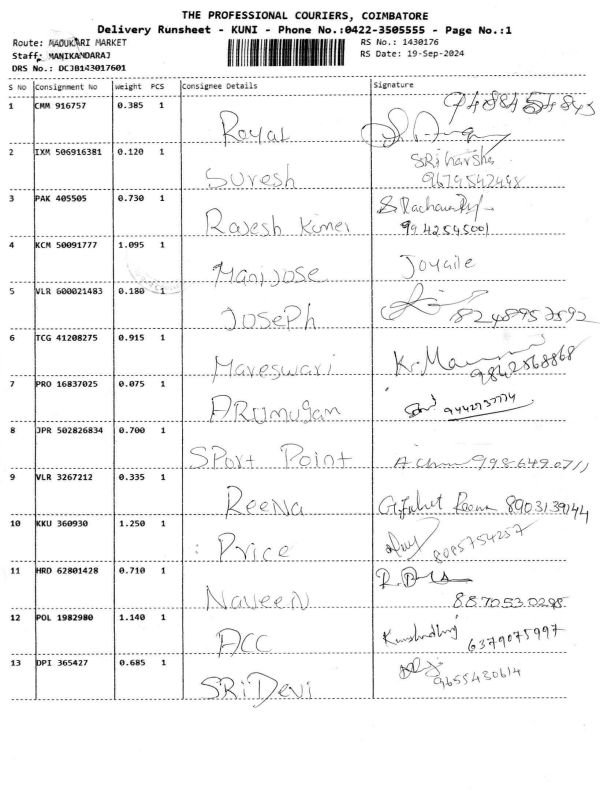 THE PROFESSIONAL COURIERS, COIMBATORE
Delivery Runsheet - KUNI - Phone No.:0422-3505555 - Page No.:1
Route: MADUKARI MARKET RS No.: 1430176
Staff: MANIKANDARAJ RS Date: 19-Sep-2024
DRS No.: DCJB143017601
S No Consignment No Weight PCS Consignee Details Signature
1 CMM 916757 0.385 1 Royal
2 IXM 506916381 0.120 1 Suresh SRiharsha
9679542448
3 PAK 405505 0.730 1 Rajesh Kumer
9942545001
4 KCM 50091777 1.095 1 Manijose
5 VLR 600021483 0.180 1 Joseph 8248952592
6 TCG 41208275 0.915 1 Mareswari 9842568868
7 PRO 16837025 0.075 1 ARUmugam
8 JPR 502826834 0.700 1 SPort Point
9 VLR 3267212 0.335 1 ReeNa 8903139144
10 KKU 360930 1.250 1 : Price 8085754257
11 HRD 62801428 0.710 1 NaveeN
8870530298
12 POL 1982980 1.140 1 ACC 6379075997
13 DPI 365427 0.685 1 SRiDevi 9655430614